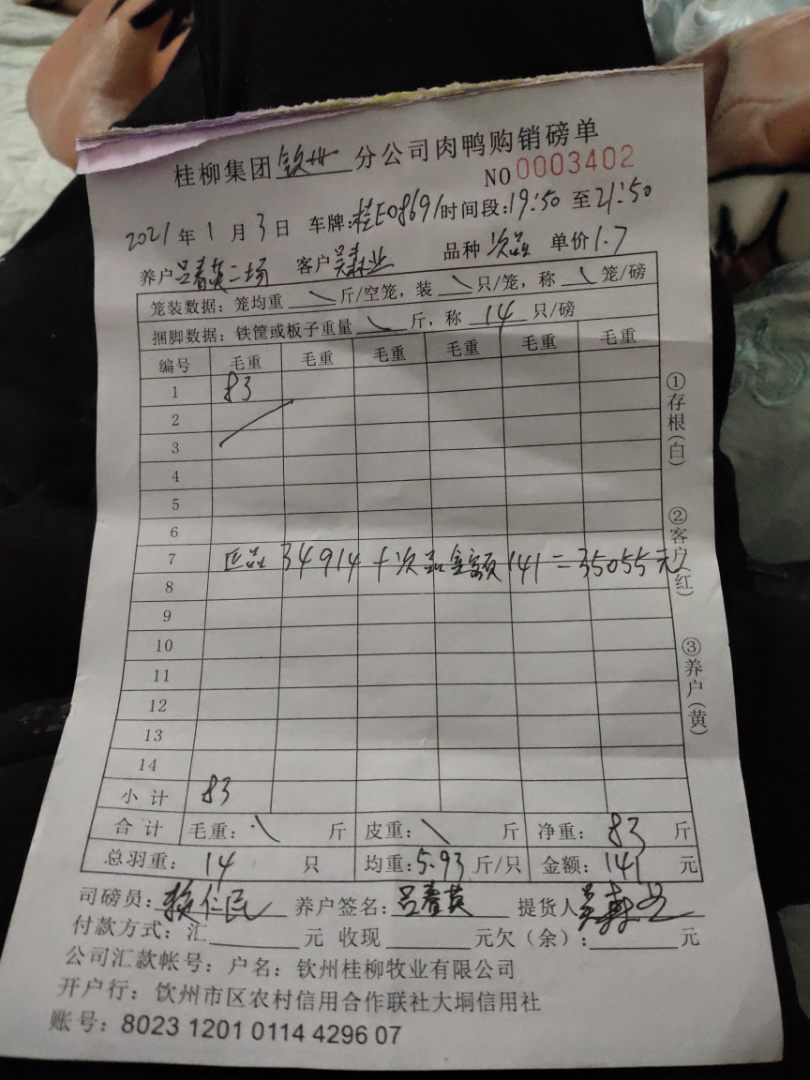 桂柳集团钦州分公司肉鸭购销磅单
NO 0003402
2021年1月3日 车牌:桂E08691 时间段:19:50 至 21:50
养户吕春英二场 客户吴 业 品种 次品 单价1.7
笼装数据: 笼均重 \ 斤/空笼, 装 \ 只/笼, 称 \ 笼/磅
捆脚数据: 铁筐或板子重量 \ 斤, 称 14 只/磅
编号 毛重 毛重 毛重 毛重 毛重 毛重
1 83
2
3
4
5
6
7 正品 34914 + 次品金额 141 = 35055元
8
9
10
11
12
13
14
小计 83
合计 毛重: \ 斤 皮重: \ 斤 净重: 83 斤
总羽重: 14 只 均重: 5.93 斤/只 金额: 141 元
司磅员: 仁民 养户签名: 吕春英 提货人 吴
付款方式: 汇 元 收现 元欠(余): 元
公司汇款帐号: 户名: 钦州桂柳牧业有限公司
开户行: 钦州市区农村信用合作联社大垌信用社
账号: 8023 1201 0114 4296 07
①存根(白)
②客户(红)
③养户(黄)